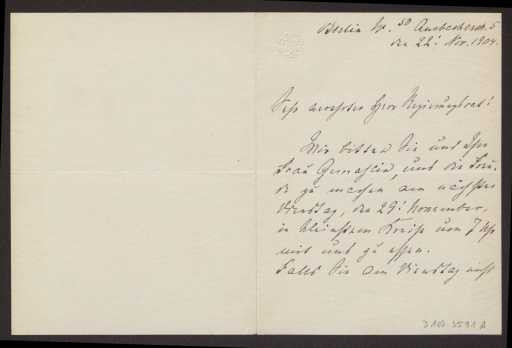 Berlin W. 50 Ansbacherstr. 5
den 22: Nov. 1904.
Sehr verehrter Herr Regierungsrat!
Wir bitten Sie und Ihre
Frau Gemahlin, uns die Freu-
de zu machen am nächsten
Dienstag, den 29: November,
in kleinstem Kreise um 7 Uhr
mit uns zu essen.
Falls Sie am Dienstag nicht